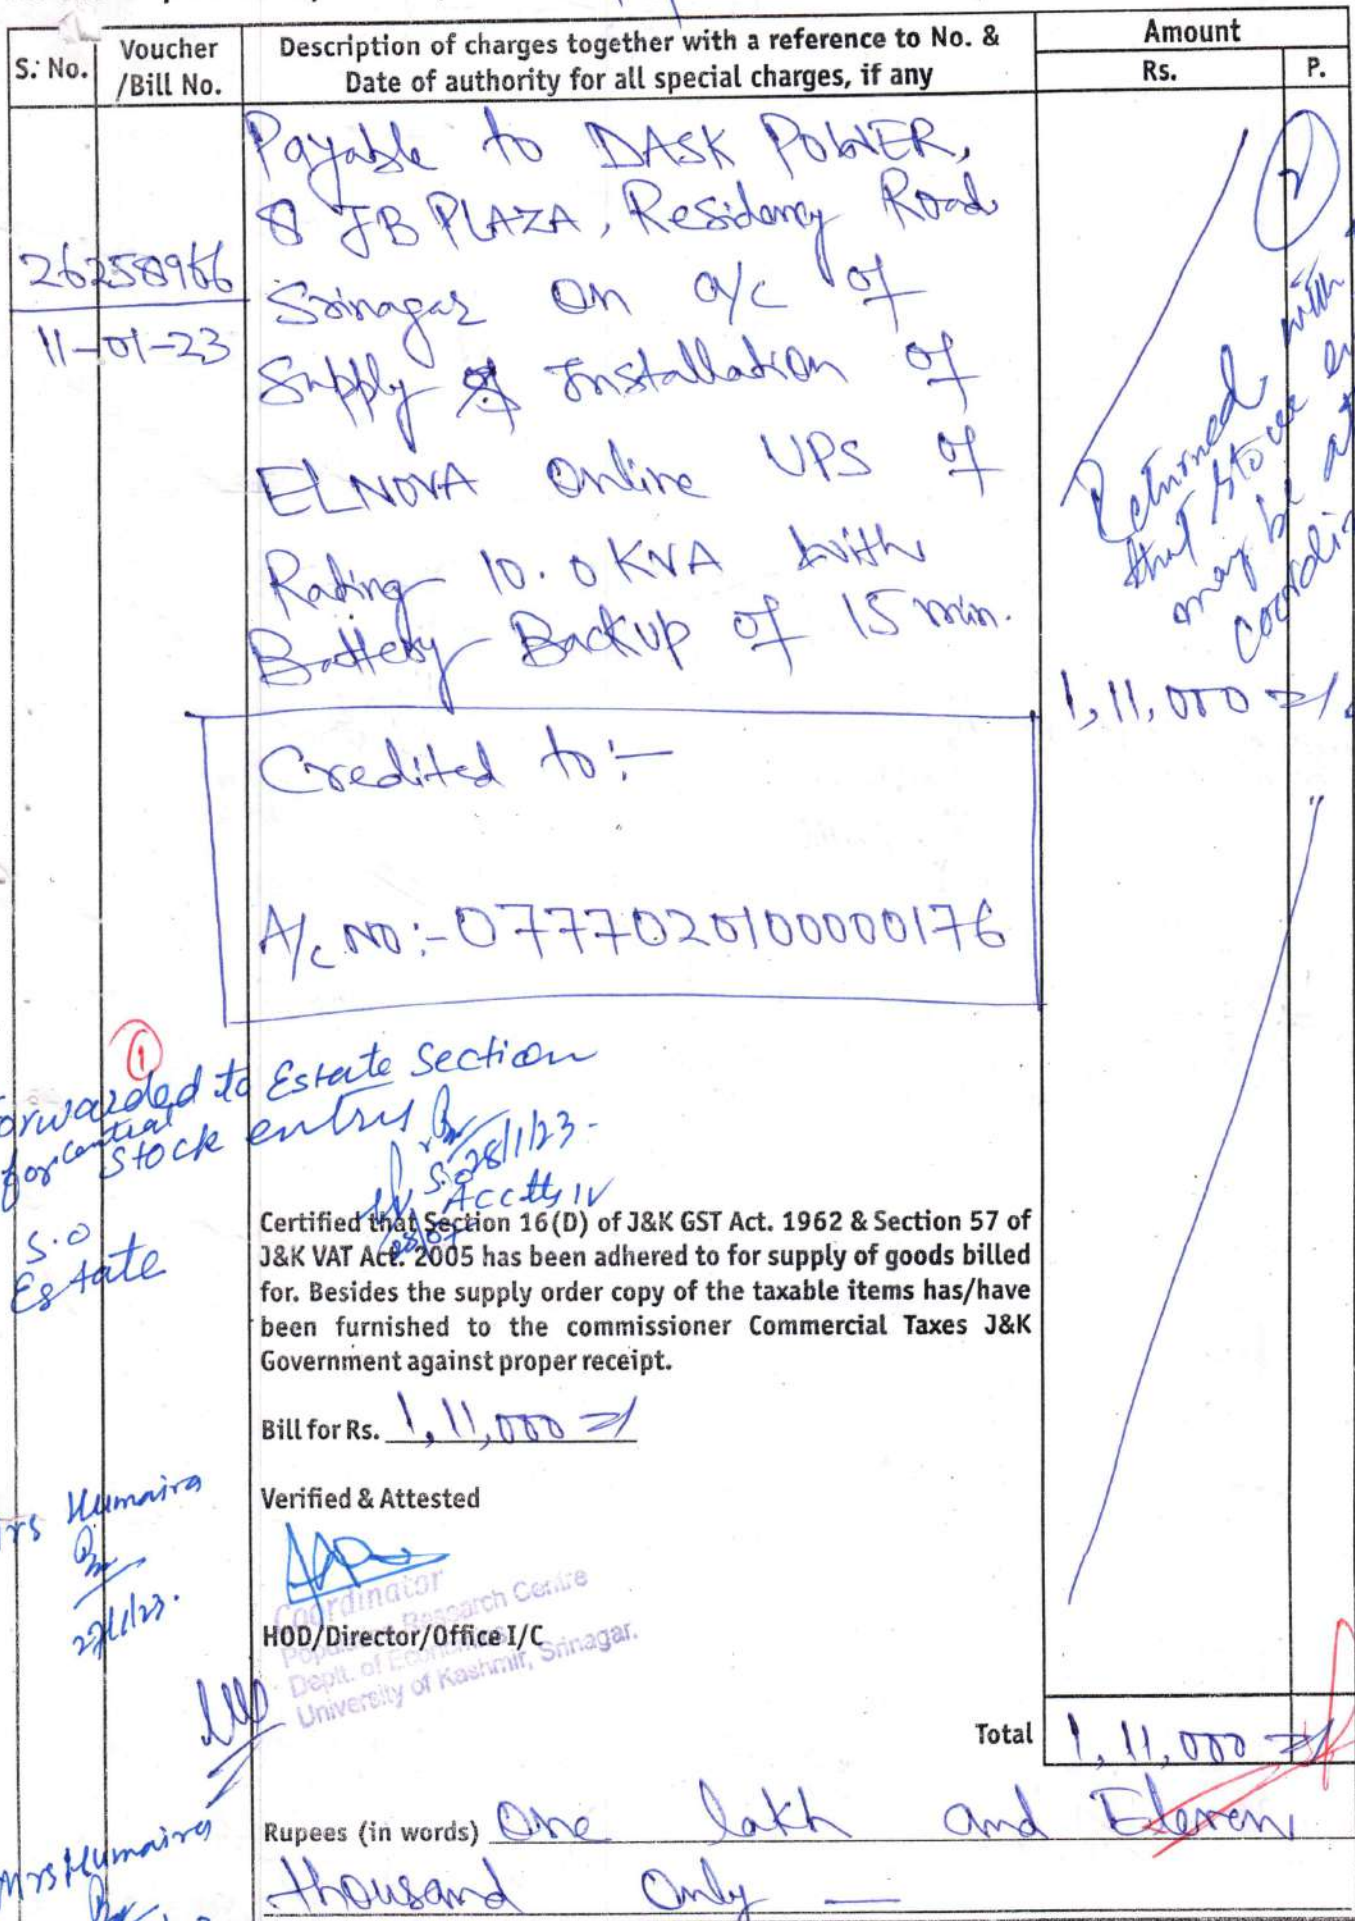 S. No.
Voucher
/Bill No.
Description of charges together with a reference to No. &
Date of authority for all special charges, if any
Amount
Rs.
P.
26258966
11-01-23
Payable to DASK POWER,
8 JB PLAZA, Residency Road
Srinagar on a/c of
Supply & Installation of
ELNOVA Online UPS of
Rating 10.0 KVA with
Battery Backup of 15 min.
1,11,000 =/
2
Returned with
that store
may be
Credited to:-
A/c No:- 0777020100000176
1
Forwarded to Estate Section
for Central Stock entry
S.O 28/1/23.
Acctts IV
S.O
Estate
Certified that Section 16(D) of J&K GST Act. 1962 & Section 57 of
J&K VAT Act. 2005 has been adhered to for supply of goods billed
for. Besides the supply order copy of the taxable items has/have
been furnished to the commissioner Commercial Taxes J&K
Government against proper receipt.
Bill for Rs. 1,11,000 =/
Verified & Attested
Mrs Humaira
27/1/23.
Coordinator
Population Research Centre
HOD/Director/Office I/C
Deptt. of Economics
University of Kashmir, Srinagar.
Total 1,11,000 =/
Rupees (in words) One lakh and Eleven
thousand Only —
Mrs Humaira